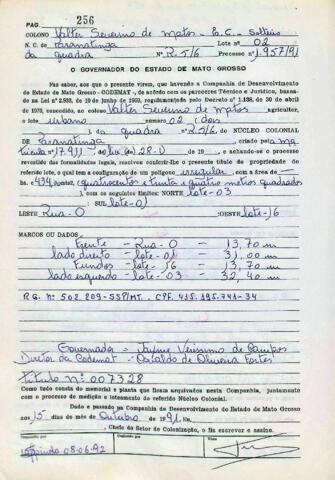 PAG. 256
COLONO Valter Severino de Matos - E.C. Solteiro
N. C. de Paranatinga Lote nº 02
da quadra Nº R.5/6 Nº 1.957/91
O GOVERNADOR DO ESTADO DE MATO GROSSO
Faz saber, aos que o presente virem, que havendo a Companhia de Desenvolvimento
do Estado de Mato Grosso - CODEMAT -, de acôrdo com os pareceres Técnico e Jurídico, basea-
da na Lei nº 2.933, de 19 de junho de 1969, regulamentada pelo Decreto nº 1.138, de 30 de abril
de 1970, concedido ao colono Valter Severino de Matos agricultor,
o lote urbano numero 02 (dois
), da quadra nº R.5/6, NÚCLEO COLONIAL
DE Paranatinga criado pela ma
tricula nº 17.911 do liv. 28-U de 19 , e achando-se o processo
revestido das formalidades legais, resolveu conferir-lhe o presente título de propriedade do
referido lote, o qual tem a configuração de um polígono irregular, com a área de —
hs 434,00m2, (quatrocentos e trinta e quatro metros quadrados
), com os seguintes limites: NORTE lote-03
SUL lote-01
LESTE Rua-O OESTE lote-16
MARCOS OU DADOS
Frente - Rua-O - 13,70 m
lado direito - lote-01 - 31,00 m
Fundos - lote-16 - 13,70 m
lado esquerdo - lote-03 - 32,40 m
R.G. Nº 502.209-SSP/MT. CPF. 415.195.741-34
Governador - Jayme Verissimo de Campos
Diretor da Codemat -
titulo nº 007328
Como tudo consta do memorial e planta que ficam arquivados nesta Companhia, juntamente
com o processo de medição e loteamento do referido Núcleo Colonial.
Dado e passado na Companhia de Desenvolvimento do Estado de Mato Grosso
aos 15 dias do mês de Outubro de 1991. Eu
Chefe do Setor de Colonização, o fiz escrever e assino.
08-06-92